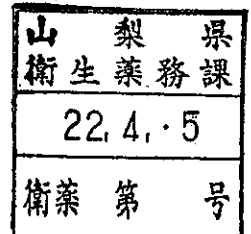 山梨県
衛生薬務課
22.4.·5
衛薬第 号